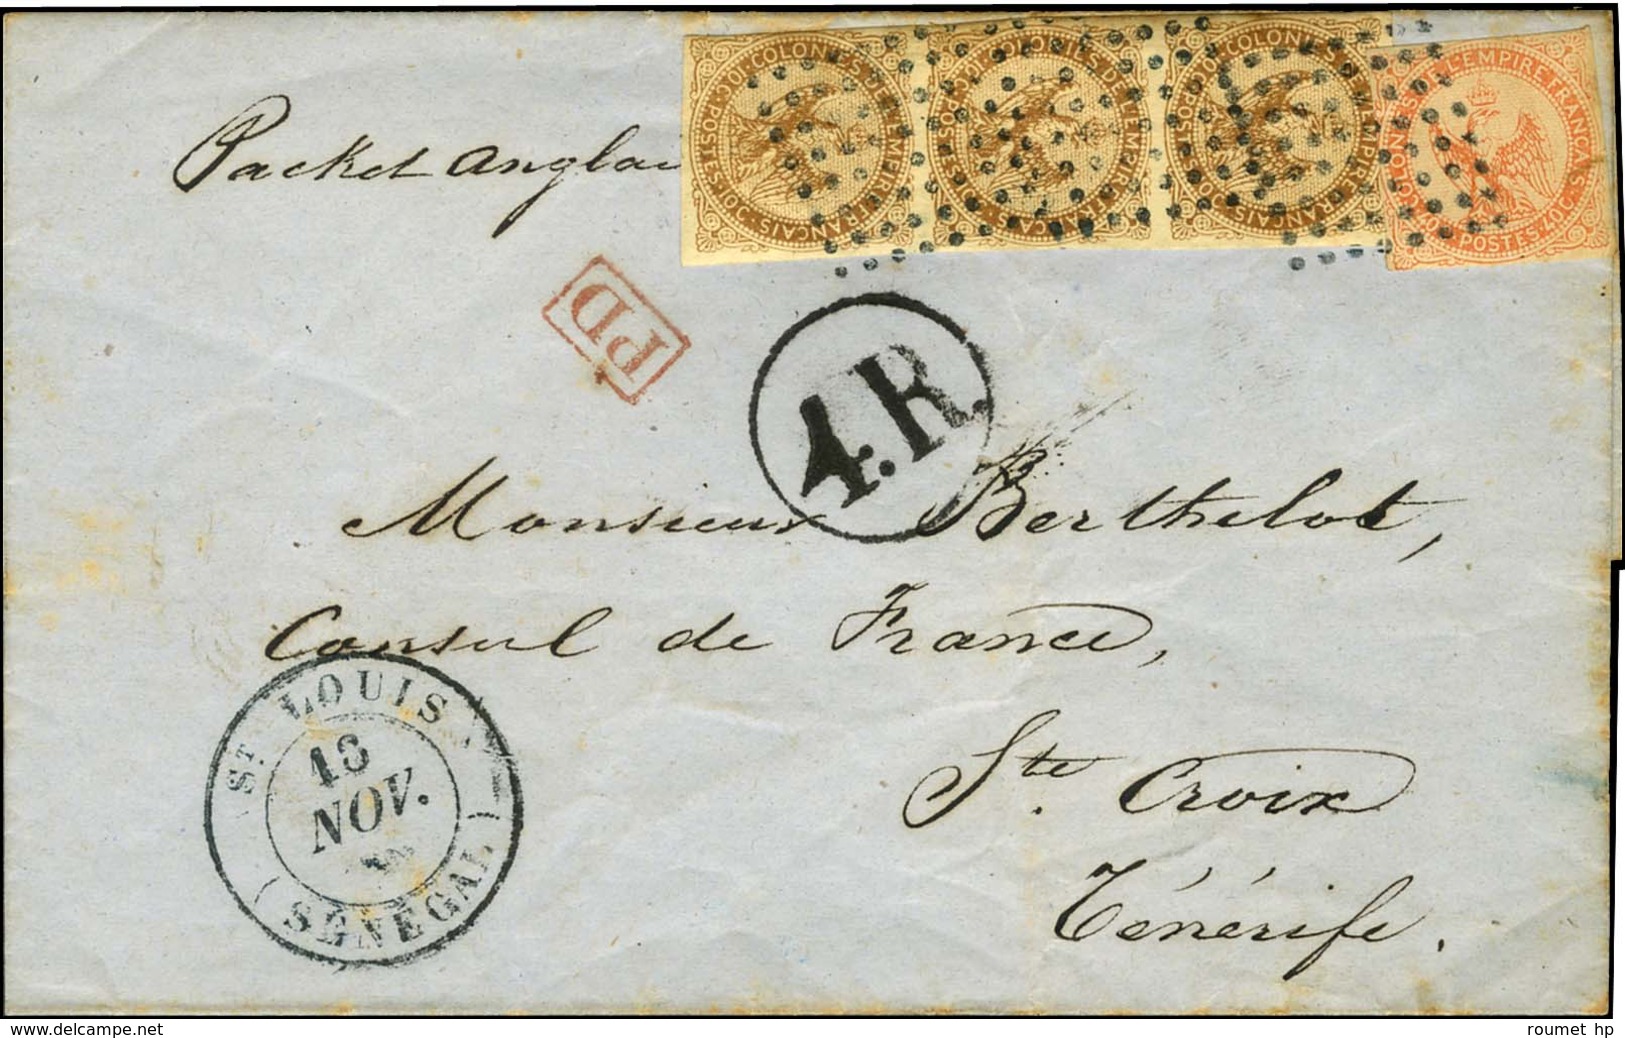 Packet anglai
COLONIES DE L'EMPIRE FRANÇAIS · POSTES 10C
COLONIES DE L'EMPIRE FRANÇAIS · POSTES 10C
COLONIES DE L'EMPIRE FRANÇAIS · POSTES 10C
COLONIES DE L'EMPIRE FRANÇAIS · POSTES 40C
PD
4.R.
Monsieur Berthelot,
Consul de France,
Ste. Croix
Ténérife.
ST LOUIS
13
NOV.
(SÉNÉGAL)
www.delcampe.net
roumet hp